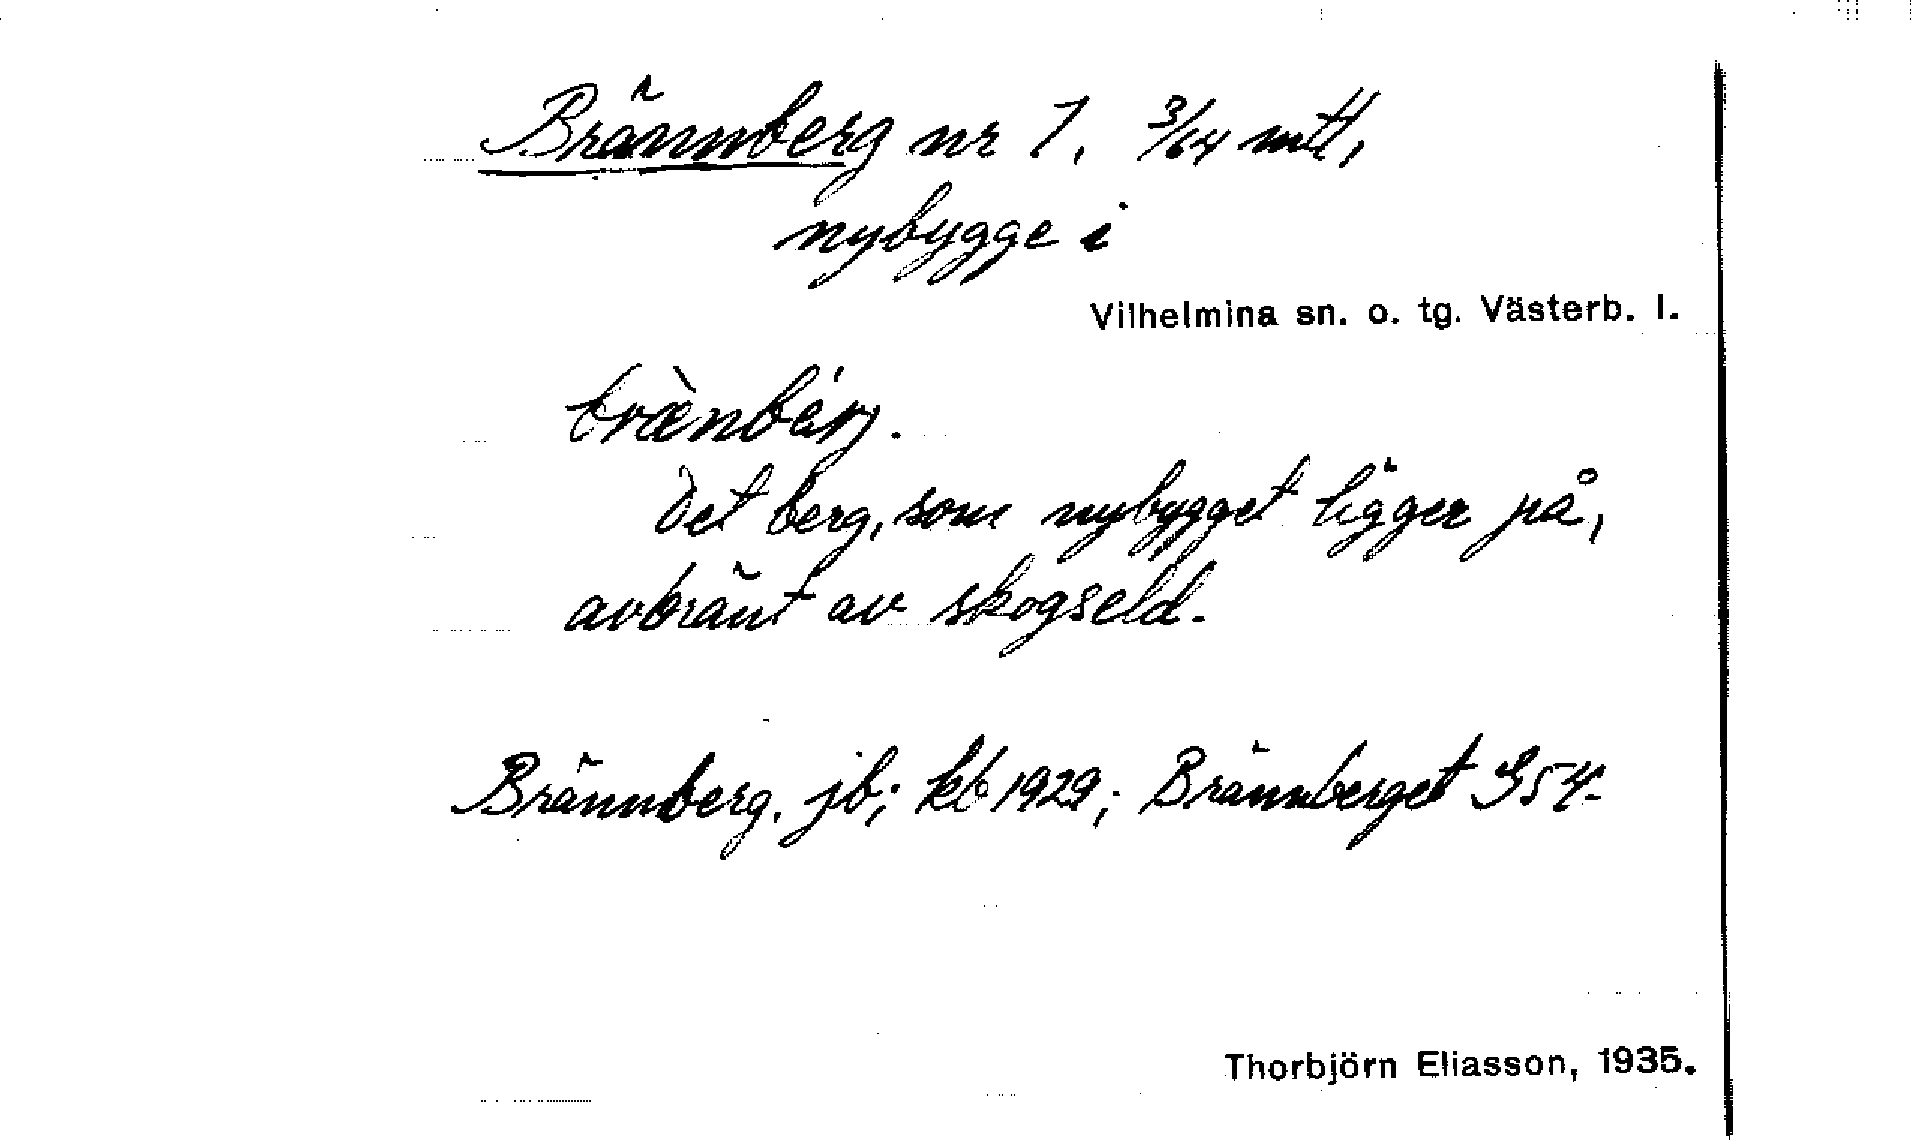 Brännberg nr 1, 3/64 mtl,
nybygge i
Vilhelmina sn. o. tg. Västerb. l.
brænbárj.
Det berg, som nybygget ligger på,
avbränt av skogseld.
Brännberg, jb; kb 1929; Brännberget G54.
Thorbjörn Eliasson, 1935.